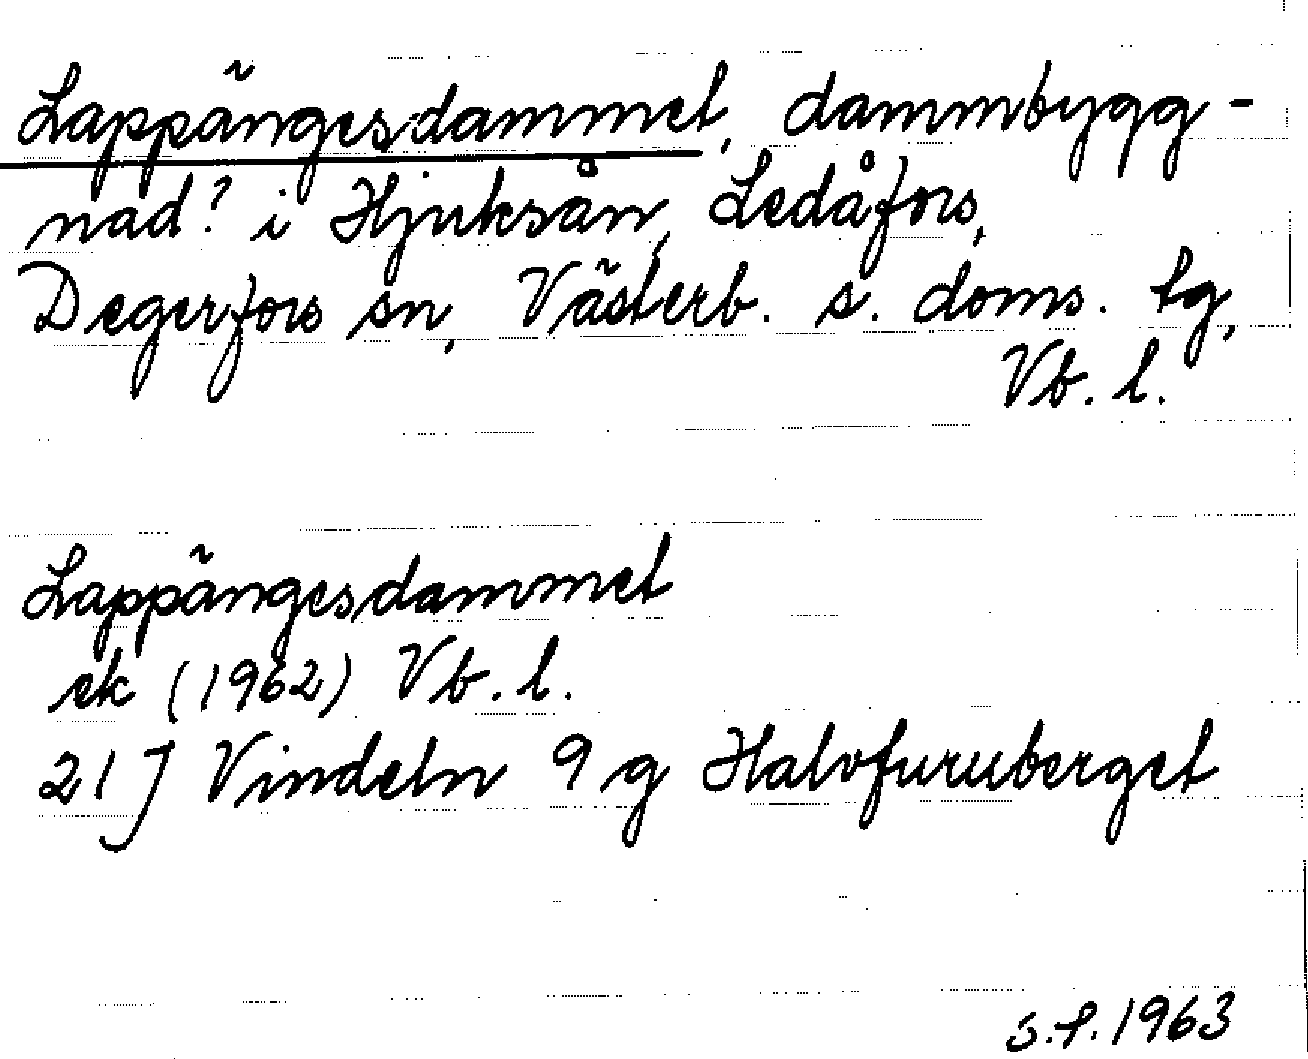 Lappängesdammet, dammbygg-
nad? i Hjuksån, Ledåfors,
Degerfors sn, Västerb. s. doms. tg,
Vb. l.
Lappängesdammet
ek (1962) Vb. l.
21 J Vindeln 9 g Halvfuruberget
S.F. 1963